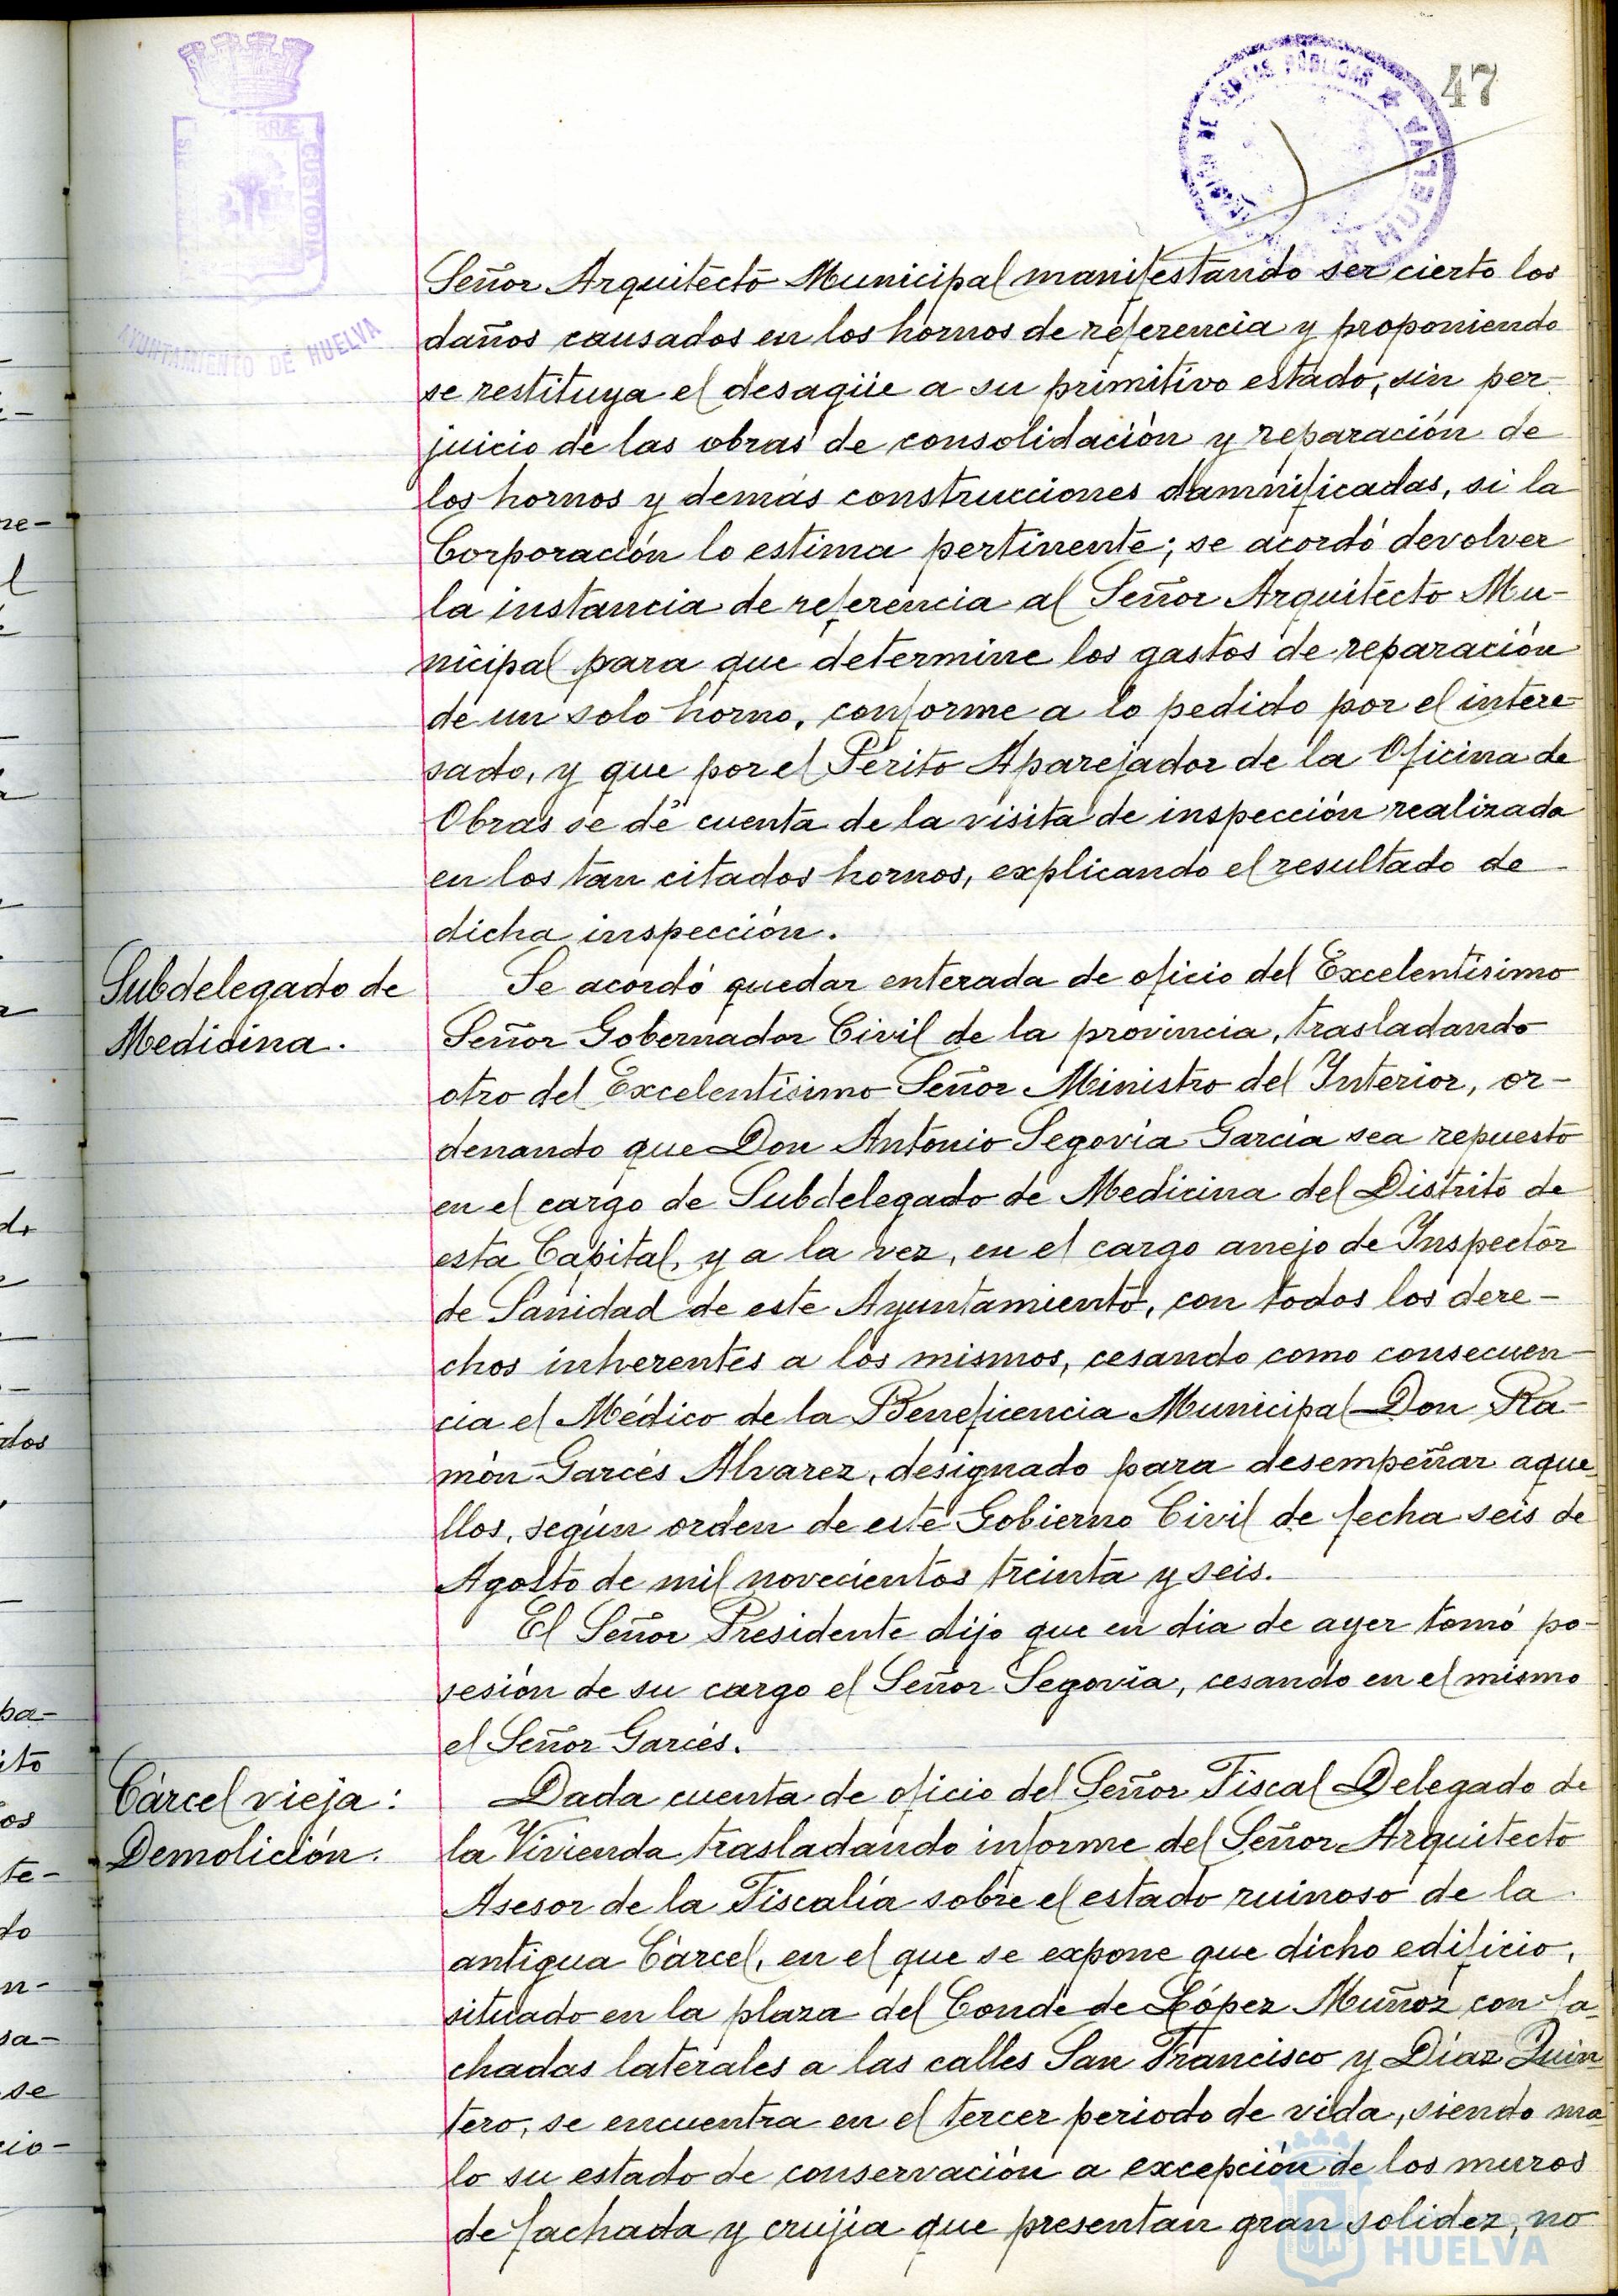 47
AYUNTAMIENTO DE HUELVA
CUSTODIA
PÚBLICAS ★ HUELVA
Señor Arquitecto Municipal manifestando ser cierto los
daños causados en los hornos de referencia y proponiendo
se restituya el desagüe a su primitivo estado, sin per-
juicio de las obras de consolidación y reparación de
los hornos y demás construcciones damnificadas, si la
Corporación lo estima pertinente; se acordó devolver
la instancia de referencia al Señor Arquitecto Mu-
nicipal para que determine los gastos de reparación
de un solo horno, conforme a lo pedido por el intere-
sado, y que por el Perito Aparejador de la Oficina de
Obras se dé cuenta de la visita de inspección realizada
en los tan citados hornos, explicando el resultado de
dicha inspección.
Subdelegado de
Medicina.
Se acordó quedar enterada de oficio del Excelentísimo
Señor Gobernador Civil de la provincia, trasladando
otro del Excelentísimo Señor Ministro del Interior, or-
denando que Don Antonio Segovia García sea repuesto
en el cargo de Subdelegado de Medicina del Distrito de
esta Capital, y a la vez, en el cargo anejo de Inspector
de Sanidad de este Ayuntamiento, con todos los dere-
chos inherentes a los mismos, cesando como consecuen-
cia el Médico de la Beneficencia Municipal Don Ra-
món Garcés Alvarez, designado para desempeñar aque
llos, según orden de este Gobierno Civil de fecha seis de
Agosto de mil novecientos treinta y seis.
El Señor Presidente dijo que en dia de ayer tomó po-
sesión de su cargo el Señor Segovia, cesando en el mismo
el Señor Garcés.
Cárcel vieja:
Demolición.
Dada cuenta de oficio del Señor Fiscal Delegado de
la Vivienda trasladando informe del Señor Arquitecto
Asesor de la Fiscalía sobre el estado ruinoso de la
antigua Cárcel, en el que se expone que dicho edificio,
situado en la plaza del Conde de López Muñoz con fa-
chadas laterales a las calles San Francisco y Díaz Quin
tero, se encuentra en el tercer periodo de vida, siendo ma
lo su estado de conservación a excepción de los muros
de fachada y crujía que presentan gran solidez, no
HUELVA